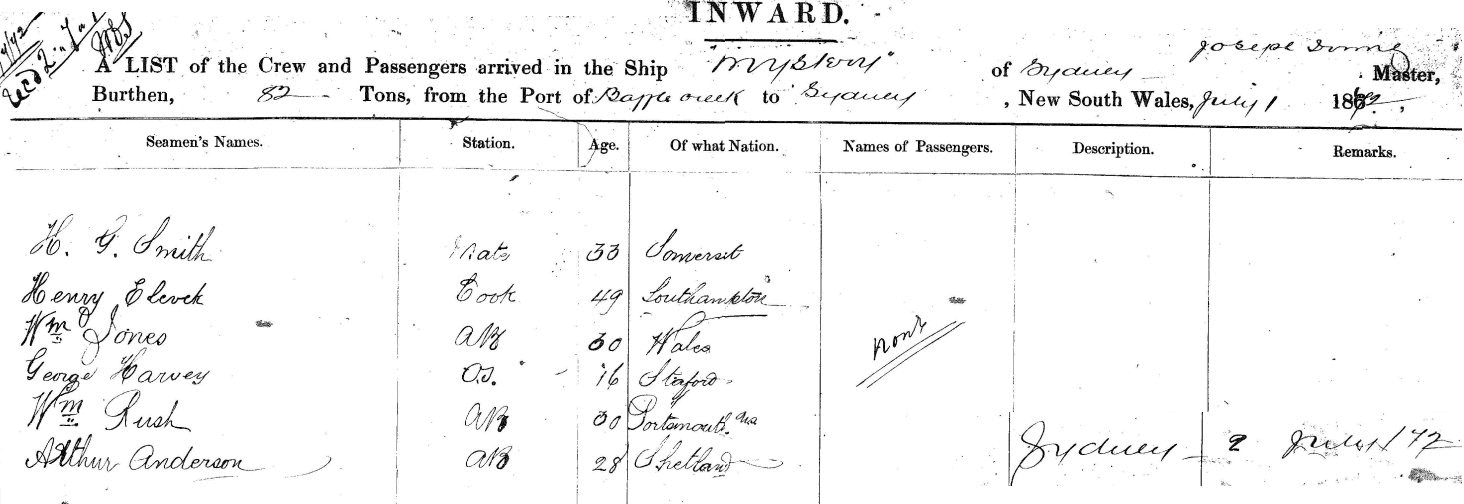 INWARD.
Joseph
A LIST of the Crew and Passengers arrived in the Ship "Mystery" of Sydney Master,
Burthen, 82 Tons, from the Port of to Sydney, New South Wales, July 1 186
Seamen's Names. Station. Age. Of what Nation. Names of Passengers. Description. Remarks.
H. G. Smith Mate 33 Somerset
Henry Elevek Cook 49 Southampton
Wm Jones AB 30 Wales None
George Harvey O.S. 16 Staford
Wm Rush AB 30 Portsmouth
Arthur Anderson AB 28 Shetland Sydney 2 July / 72